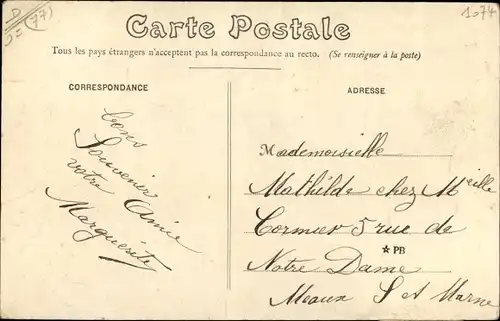 D
(77)
1074
Carte Postale
Tous les pays étrangers n'acceptent pas la correspondance au recto. (Se renseigner à la poste)
CORRESPONDANCE
Bons
Souvenirs
votre Amie
Marguerite
ADRESSE
Mademoiselle
Mathilde chez Melle
Cormier 5 rue de
★ PB
Notre Dame
Meaux S et Marne